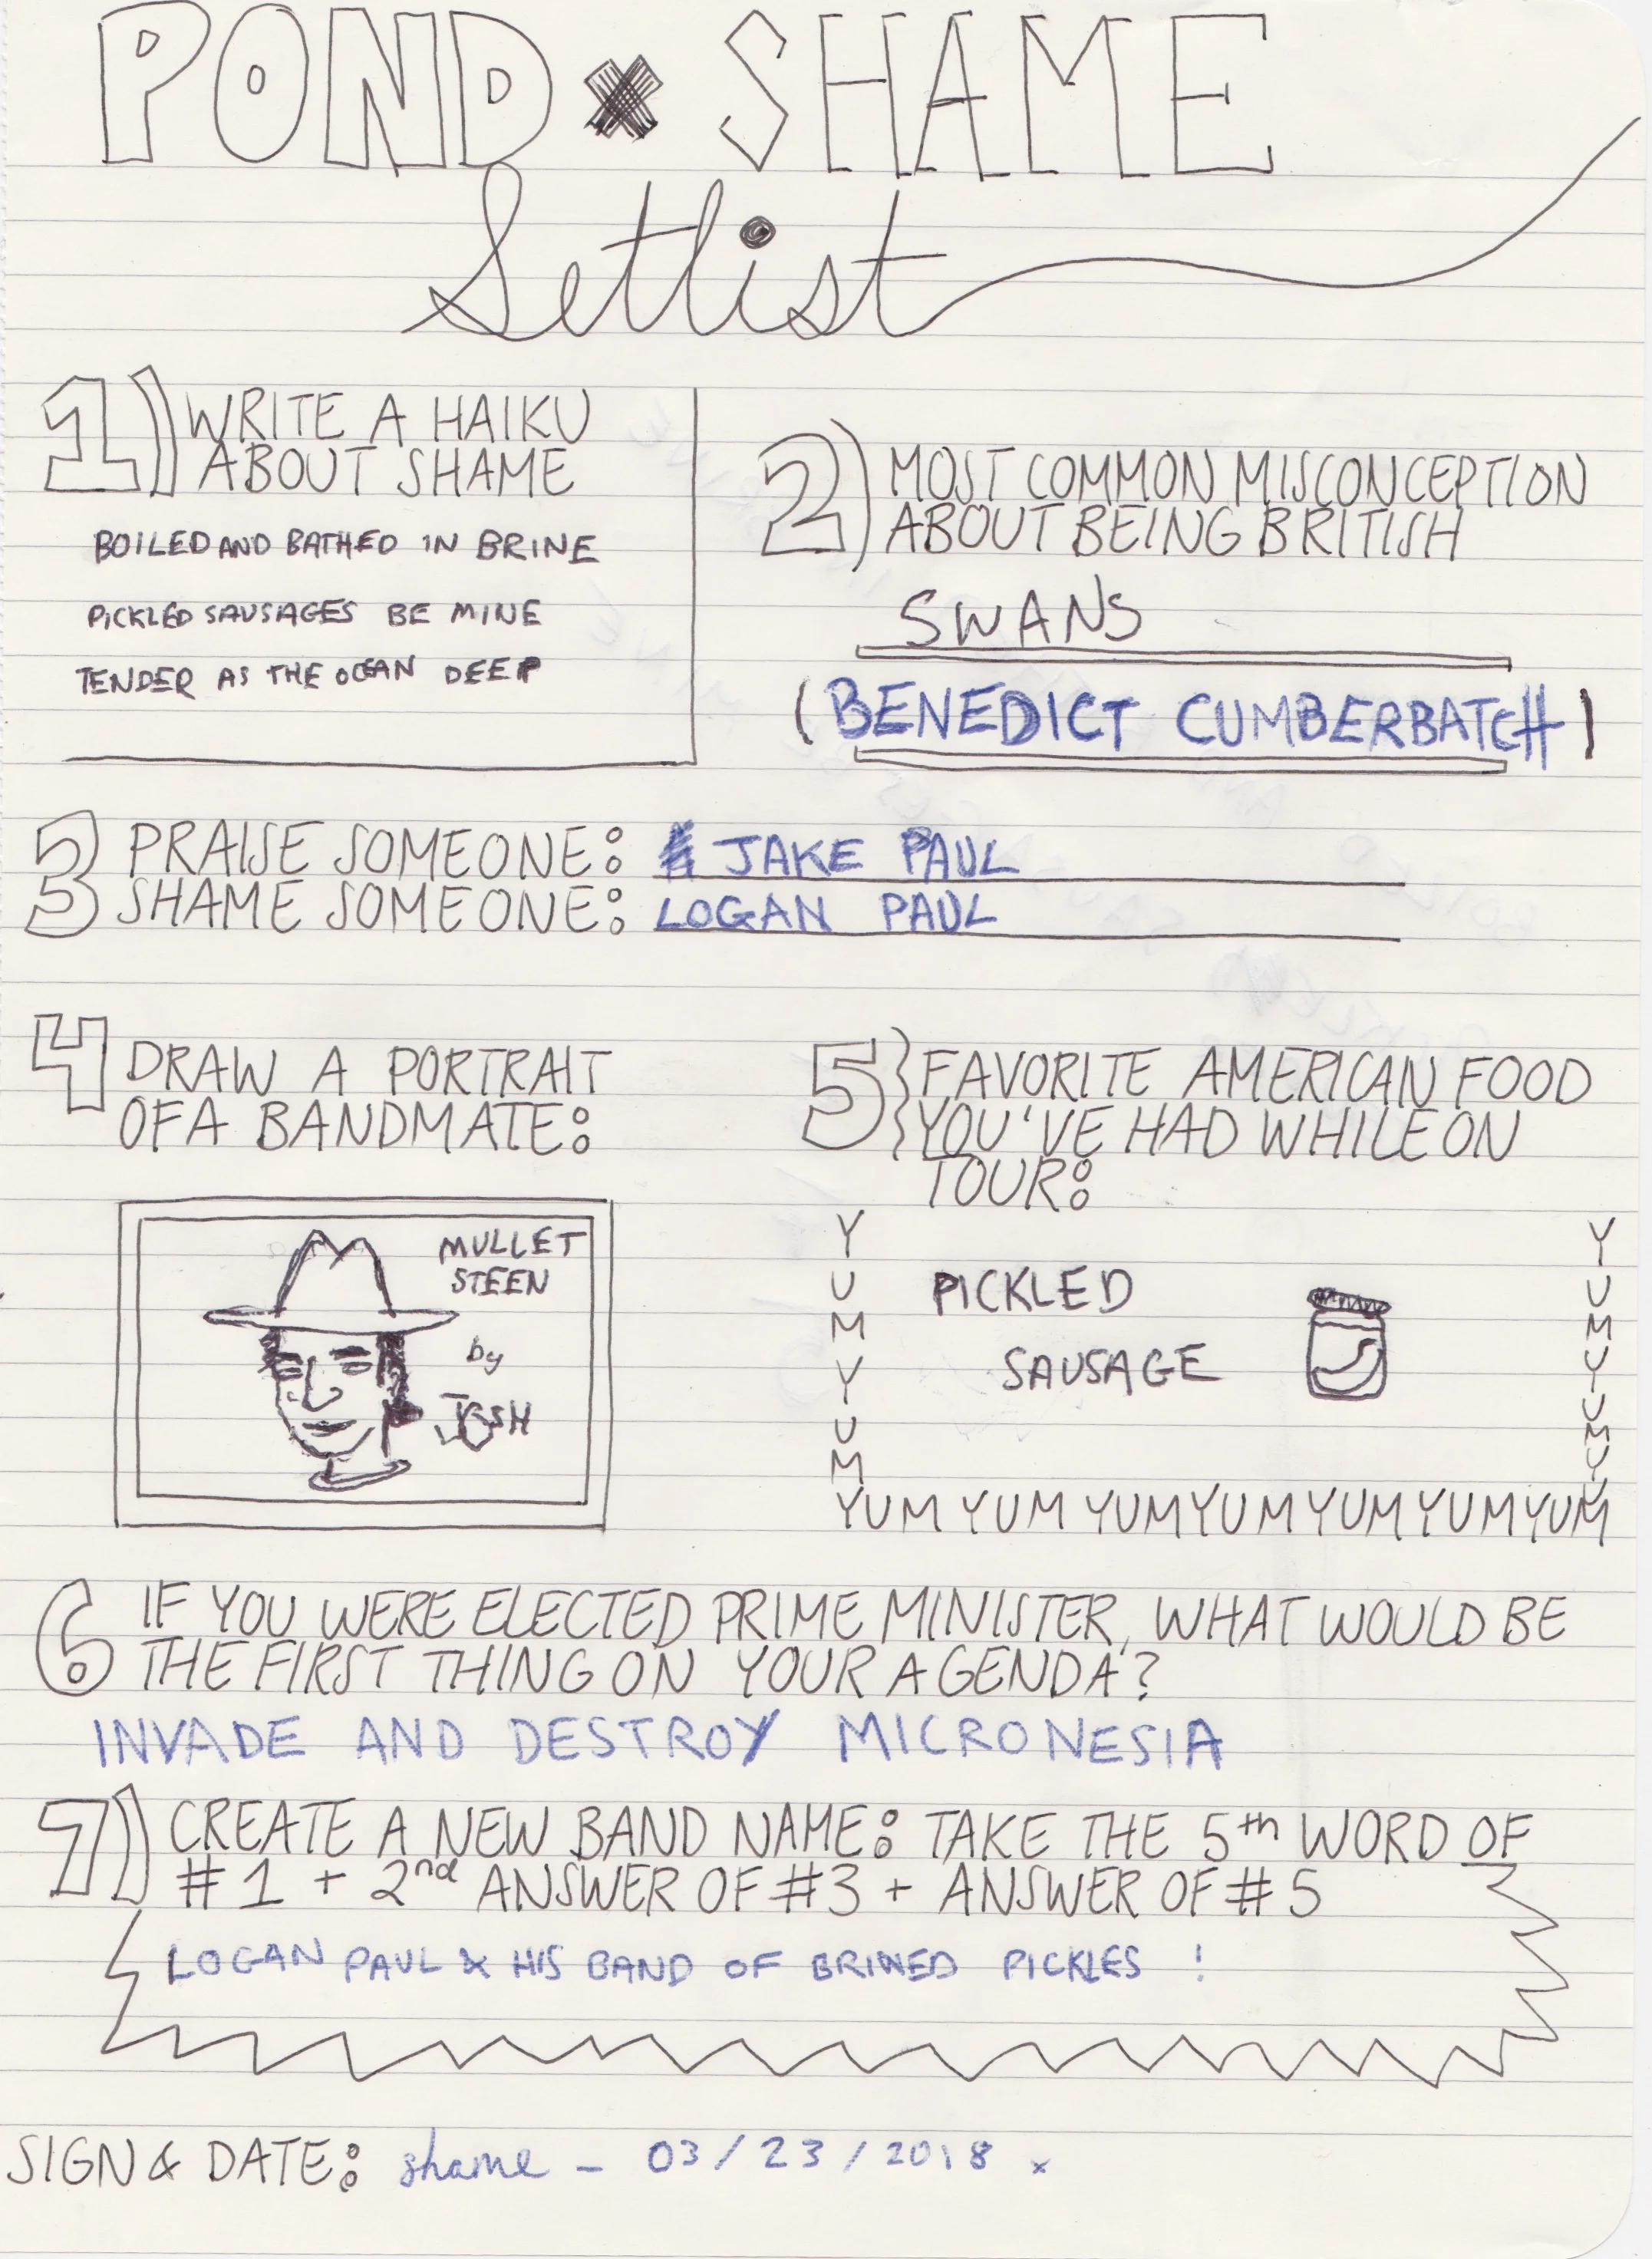 POND X SHAME
Setlist
1) WRITE A HAIKU
ABOUT SHAME
BOILED AND BATHED IN BRINE
PICKLED SAUSAGES BE MINE
TENDER AS THE OCEAN DEEP
2) MOST COMMON MISCONCEPTION
ABOUT BEING BRITISH
SWANS
(BENEDICT CUMBERBATCH)
3 PRAISE SOMEONE: JAKE PAUL
SHAME SOMEONE: LOGAN PAUL
4 DRAW A PORTRAIT
OF A BANDMATE:
MULLET
STEEN
by
JOSH
5} FAVORITE AMERICAN FOOD
YOU'VE HAD WHILE ON
TOUR:
PICKLED
SAUSAGE
YUMYUM
YUMYUMY
YUM YUM YUM YUM YUM YUM YUM
6 IF YOU WERE ELECTED PRIME MINISTER, WHAT WOULD BE
THE FIRST THING ON YOUR AGENDA?
INVADE AND DESTROY MICRONESIA
7) CREATE A NEW BAND NAME: TAKE THE 5th WORD OF
#1 + 2nd ANSWER OF #3 + ANSWER OF #5
LOGAN PAUL & HIS BAND OF BRINED PICKLES !
SIGN & DATE: shame - 03/23/2018 x